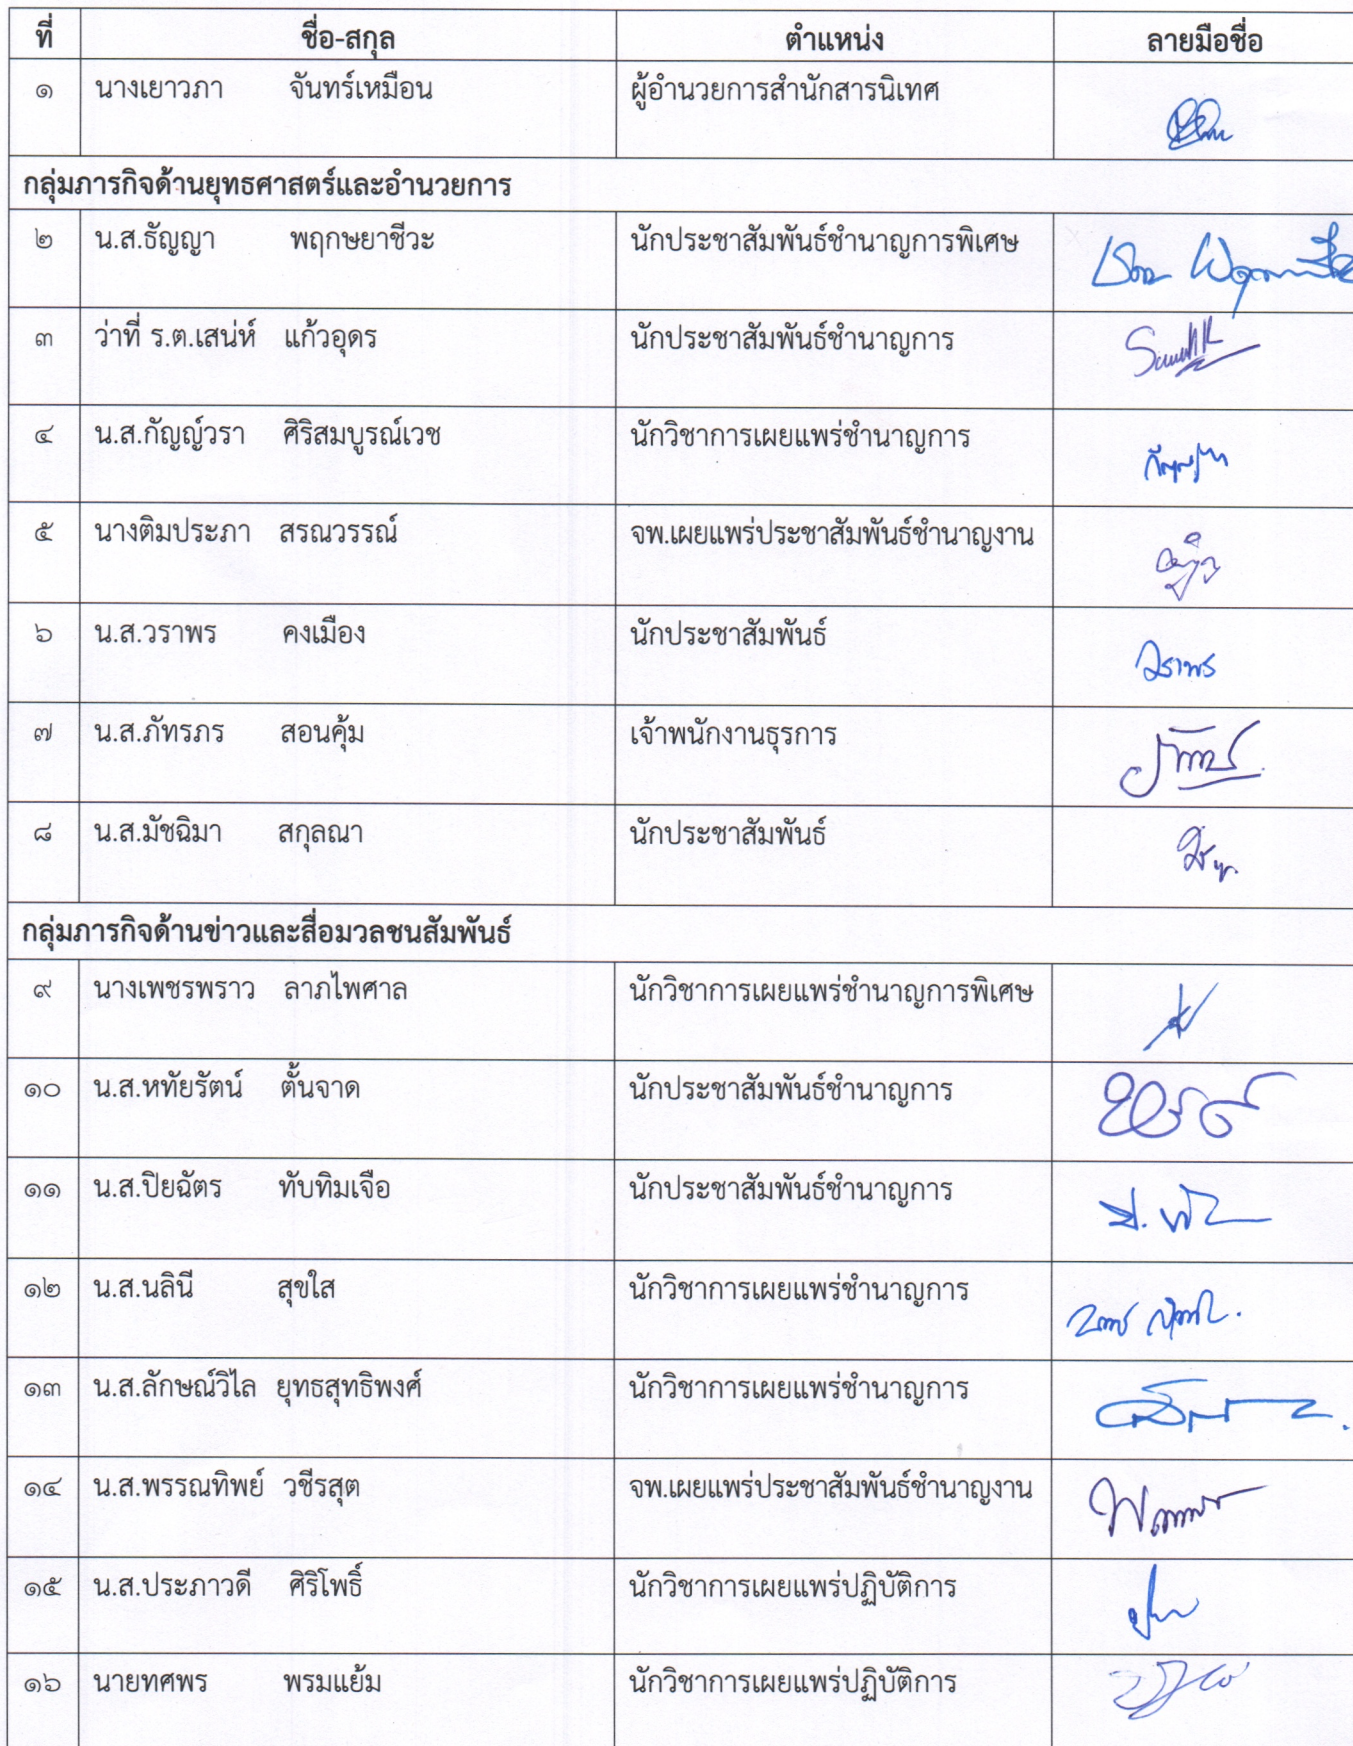 ที่ ชื่อ-สกุล ตำแหน่ง ลายมือชื่อ
๑ นางเยาวภา จันทร์เหมือน ผู้อำนวยการสำนักสารนิเทศ
กลุ่มภารกิจด้านยุทธศาสตร์และอำนวยการ
๒ น.ส.ธัญญา พฤกษยาชีวะ นักประชาสัมพันธ์ชำนาญการพิเศษ
๓ ว่าที่ ร.ต.เสน่ห์ แก้วอุดร นักประชาสัมพันธ์ชำนาญการ
๔ น.ส.กัญญ์วรา ศิริสมบูรณ์เวช นักวิชาการเผยแพร่ชำนาญการ
๕ นางติมประภา สรณวรรณ์ จพ.เผยแพร่ประชาสัมพันธ์ชำนาญงาน
๖ น.ส.วราพร คงเมือง นักประชาสัมพันธ์ วราพร
๗ น.ส.ภัทรภร สอนคุ้ม เจ้าพนักงานธุรการ
๘ น.ส.มัชฉิมา สกุลณา นักประชาสัมพันธ์
กลุ่มภารกิจด้านข่าวและสื่อมวลชนสัมพันธ์
๙ นางเพชรพราว ลาภไพศาล นักวิชาการเผยแพร่ชำนาญการพิเศษ
๑๐ น.ส.หทัยรัตน์ ตั้นจาด นักประชาสัมพันธ์ชำนาญการ
๑๑ น.ส.ปิยฉัตร ทับทิมเจือ นักประชาสัมพันธ์ชำนาญการ
๑๒ น.ส.นลินี สุขใส นักวิชาการเผยแพร่ชำนาญการ
๑๓ น.ส.ลักษณ์วิไล ยุทธสุทธิพงศ์ นักวิชาการเผยแพร่ชำนาญการ
๑๔ น.ส.พรรณทิพย์ วชีรสุต จพ.เผยแพร่ประชาสัมพันธ์ชำนาญงาน
๑๕ น.ส.ประภาวดี ศิริโพธิ์ นักวิชาการเผยแพร่ปฏิบัติการ
๑๖ นายทศพร พรมแย้ม นักวิชาการเผยแพร่ปฏิบัติการ